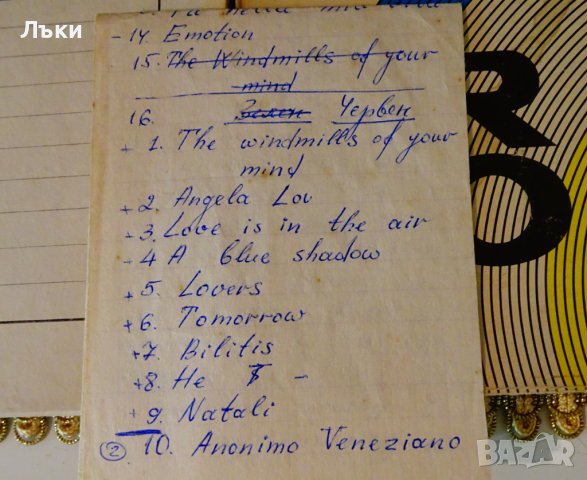 Лъки
- 14. Emotion
15. The Windmills of your
mind
16. Зелен Червен
+ 1. The windmills of your
mind
+ 2. Angela Lov
+ 3. Love is in the air
+ 4 A blue shadow
+ 5. Lovers
+ 6. Tomorrow
+ 7. Bilitis
+ 8. He -
+ 9. Natali
2 10. Anonimo Veneziano
R
O
BAZAR